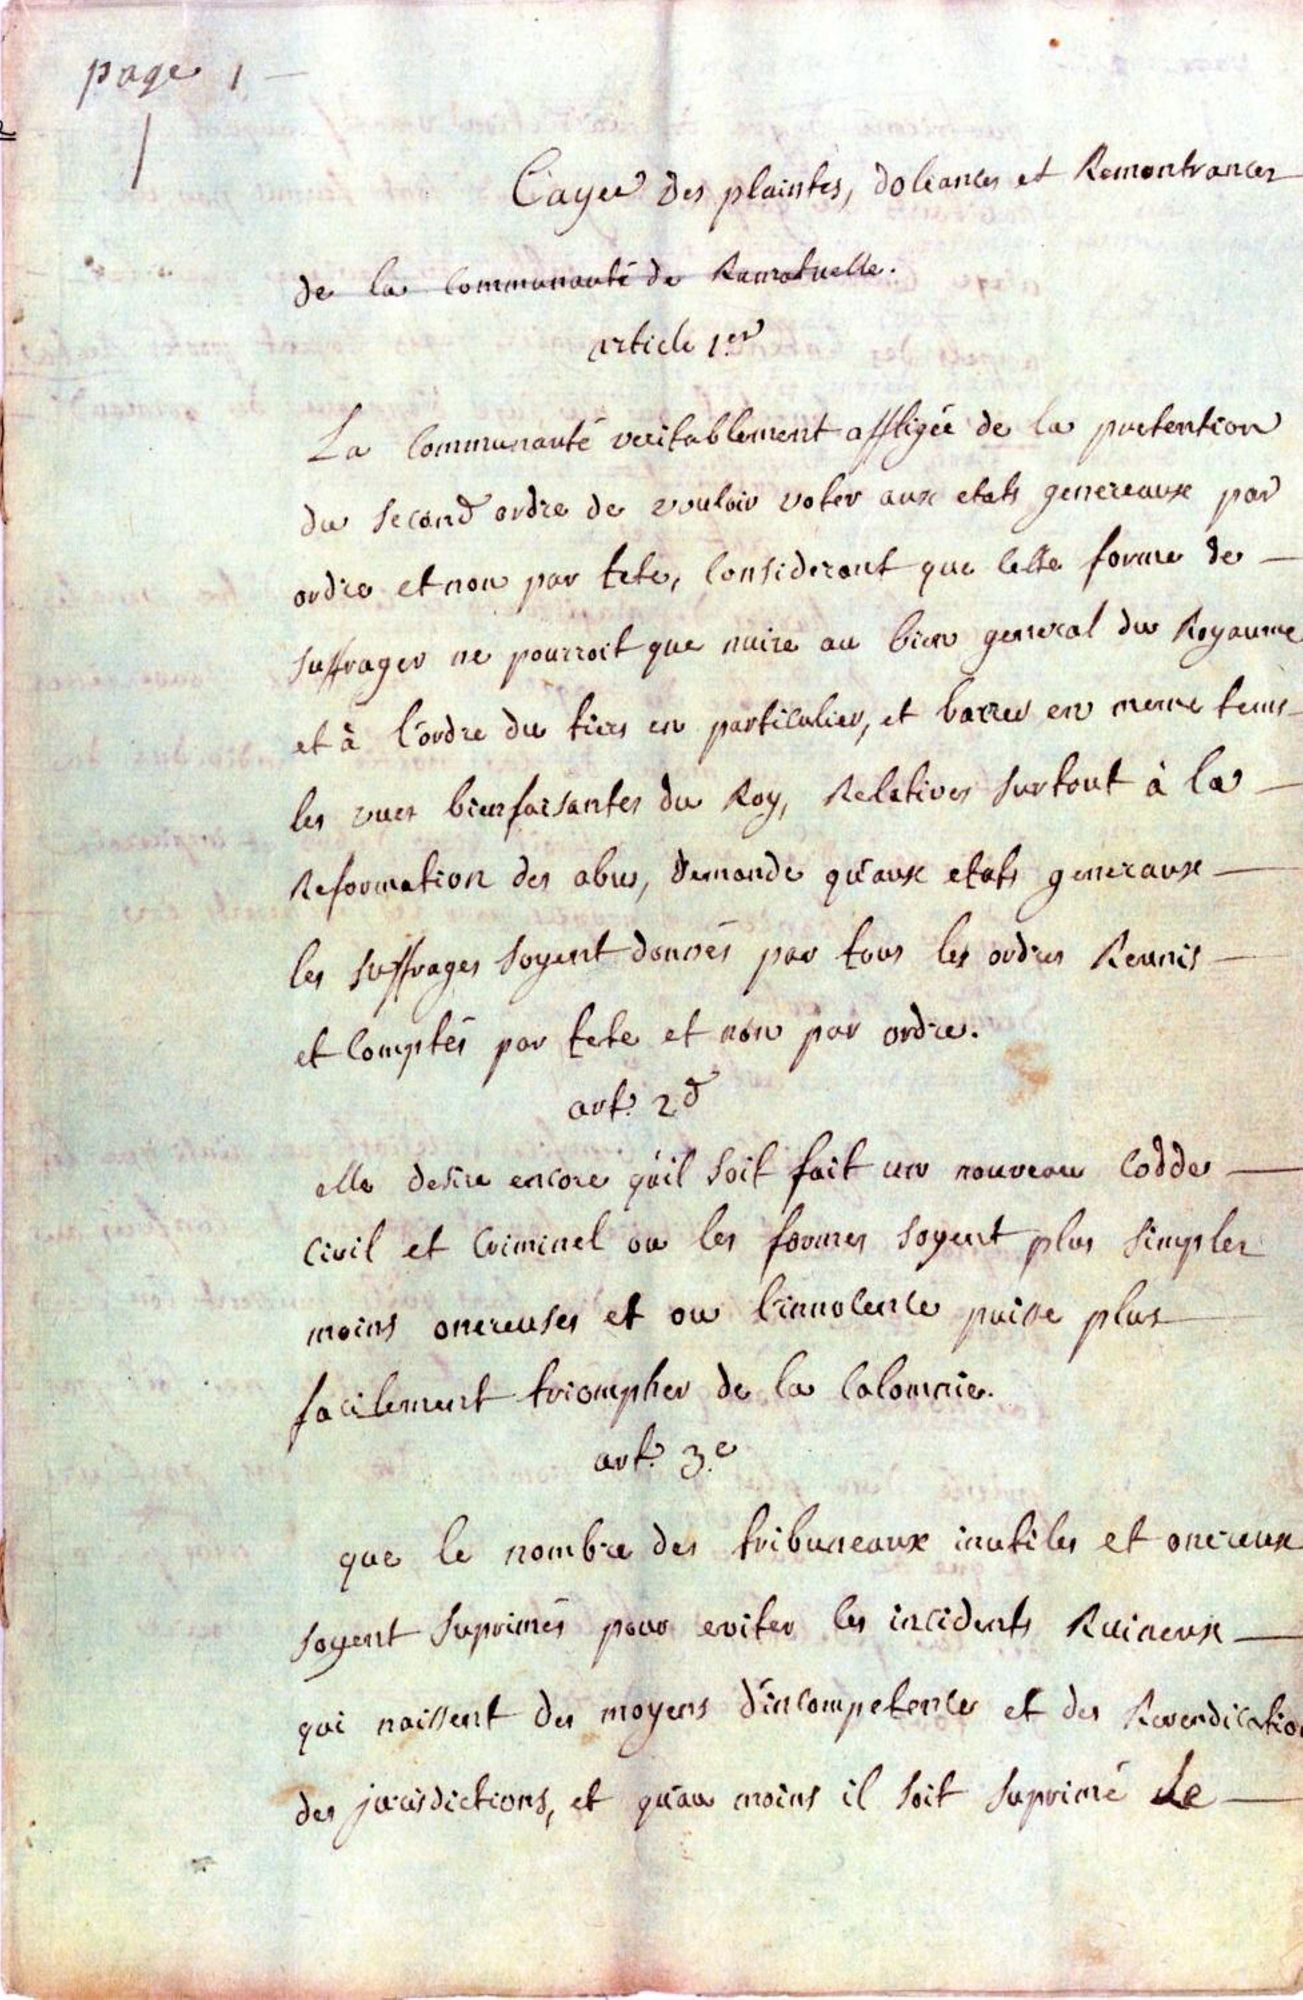 page 1
Cayer des plaintes, doleances et Remontrances
de la Communauté de Ramatuelle.
article 1.er
La Communauté veritablement affligée de la pretention
du second ordre de vouloir voter aux etats genereaux par
ordre et non par tete, Considerant que cette forme de
suffrages ne pourroit que nuire au bien general du Royaume
et à l'ordre du tiers en particulier, et barrer en meme tems
les vues bienfaisantes du Roy, Relatives surtout à la
Reformation des abus, demande qu'aux etats generaux
les suffrages soyent donnés par tous les ordres Reunis
et Comptés par tete et non par ordre.
art. 2d
elle desire encore q'uil soit fait un nouveau Codde
Civil et Criminel ou les formes soyent plus simples
moins onereuses et ou l'innocence puisse plus
facilement triompher de la Calomnie.
art. 3.e
que le nombre des tribuneaux inutiles et onereux
soyent suprimés pour eviter les incidents Ruineux
qui naissent des moyens d'incompetence et des Revendication
des jurisdictions, et qu'au moins il soit suprimé de